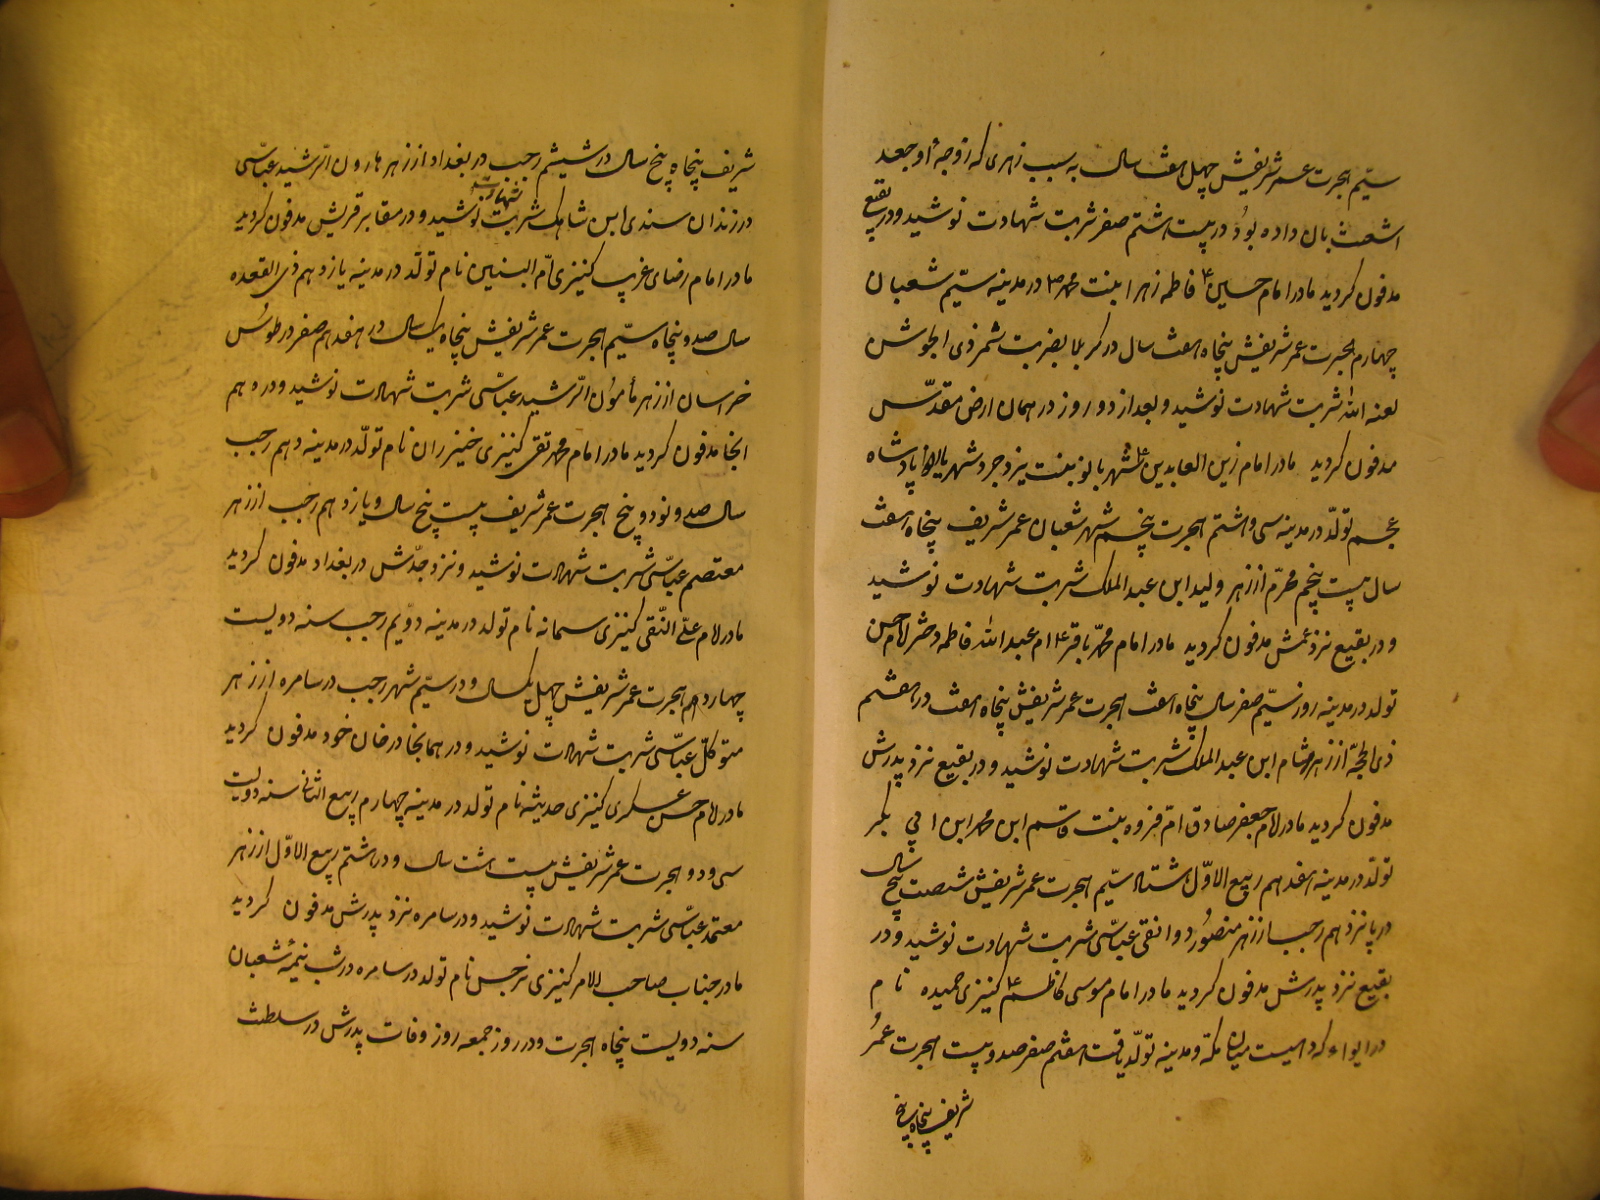 سیّم هجرت عمر شریفش چهل هفت سال به سبب زهری که زوجه او جعد
اشعث بان داده بود در بیست اشتم صفر شربت شهادت نوشید و در بقیع
مدفون کردید مادر امام حسین ع فاطمه زهرا بنت محمد ص در مدینه سیّم شعبان
چهارم هجرت عمر شریفش پنجاه هفت سال در کربلا بضربت شمر ذی الجوشن
لعنه الله شربت شهادت نوشید و بعد از دو روز در همان ارض مقدّس
مدفون کردید مادر امام زین العابدین ع شهربانو بنت یزدجرد شهریار پادشاه
عجم تولّد در مدینه سی و اشتم هجرت پنجم شهر شعبان عمر شریف پنجاه هفت
سال بیست پنجم محرّم از زهر ولید ابن عبد الملک شربت شهادت نوشید
و در بقیع نزد عمش مدفون کردید مادر امام محمّد باقر ع ام عبد الله فاطمه دختر امام حسن
تولد در مدینه روز سیّم صفر سال پنجاه هفت هجرت عمر شریفش پنجاه هفت در هفتم
ذی الحجّه از زهر هشام ابن عبد الملک شربت شهادت نوشید و در بقیع نزد پدرش
مدفون کردید مادر امام جعفر صادق امّ فروه بنت قاسم ابن محمد ابن ابی بکر
تولّد در مدینه هفدهم ربیع الاوّل هشتاد سیّم هجرت عمر شریفش شصت پنج سال
در پانزدهم رجب از زهر منصور دوانقی عبّاسی شربت شهادت نوشید و در
بقیع نزد پدرش مدفون کردید مادر امام موسی کاظم ع کنیزی حمیده نام
در ابواء که دهیست میان مکّه و مدینه تولّد یافت هفتم صفر صد و بیست هجرت عمر
شریف پنجاه پنج
شریف پنجاه پنج سال در ششم رجب در بغداد از زهر هارون الرّشید عبّاسی
در زندان سندی ابن شاهک شربت شهادت نوشید و در مقابر قریش مدفون کردید
مادر امام رضای غریب کنیزی امّ البنین نام تولّد در مدینه یازدهم ذی القعده
سال صد و پنجاه سیّم هجرت عمر شریفش پنجاه یکسال در هفدهم صفر در طوس
خراسان از زهر مأمون الرّشید عبّاسی شربت شهادت نوشید و در ه هم
انجا مدفون کردید مادر امام محمد تقی کنیزی خیزران نام تولّد در مدینه دهم رجب
سال صد و نود و پنج هجرت عمر شریف بیست پنج سال و یازدهم رجب از زهر
معتصم عبّاسی شربت شهادت نوشید و نزد جدّش در بغداد مدفون کردید
مادر امام علی النّقی کنیزی سمانه نام تولد در مدینه دویم رجب سنه دویست
چهاردهم هجرت عمر شریفش چهل یکسال و در سیّم شهر رجب در سامره از زهر
متوکّل عبّاسی شربت شهادت نوشید و در همانجا در خان خود مدفون کردید
مادر امام حسن عسکری کنیزی حدیثه نام تولد در مدینه چهارم ربیع الثانی سنه دویست
سی و دو هجرت عمر شریفش بیست هشت سال و در اشتم ربیع الاوّل از زهر
معتمد عبّاسی شربت شهادت نوشید و در سامره نزد پدرش مدفون کردید
مادر جناب صاحب الامر کنیزی نرجس نام تولد در سامره در شب نیمه شعبان
سنه دویست پنجاه هجرت و در روز جمعه روز وفات پدرش در سلطنت